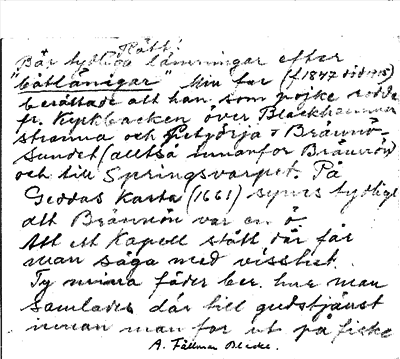 Rätt!
Där tydliga lämningar efter
"båtlänigar" Min far (f 1847 död 1915)
berättade att han som pojke rodde
fr. Kyrkbacken över Blackhamnen
stranna och Getgörja i Brännö-
sundet (alltså innanför Brännön)
och till Springsvarpet. På
Geddas Karta (1661) synes tydligt
att Brännön var en ö
Att ett Kapell stått där får
man säga med visshet.
Ty mina fäder ber. hur man
samlades där till gudstjänst
innan man for ut på fiske
A. Fällman